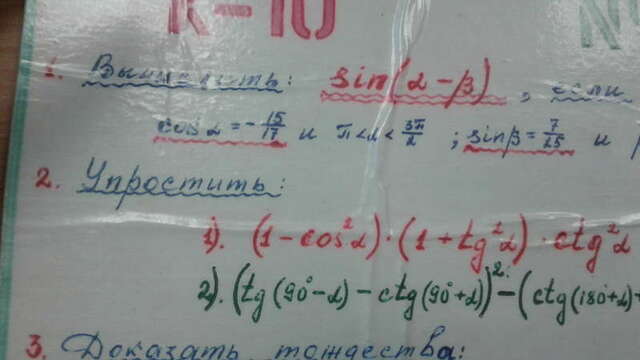 К-10
1. Вычислить: sin(α-β), если
cos α = -15/17 и π<α<3π/2 ; sinβ = 7/25 и
2. Упростить:
1). (1-cos²α)·(1+tg²α)·ctg²α
2). (tg(90-α)-ctg(90+α))²-(ctg(180+α)
3. Доказать тождества: